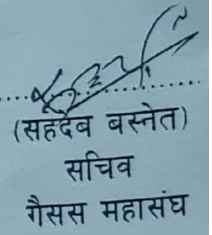 (सहदेब बस्नेत)
सचिव
गैसस महासंघ